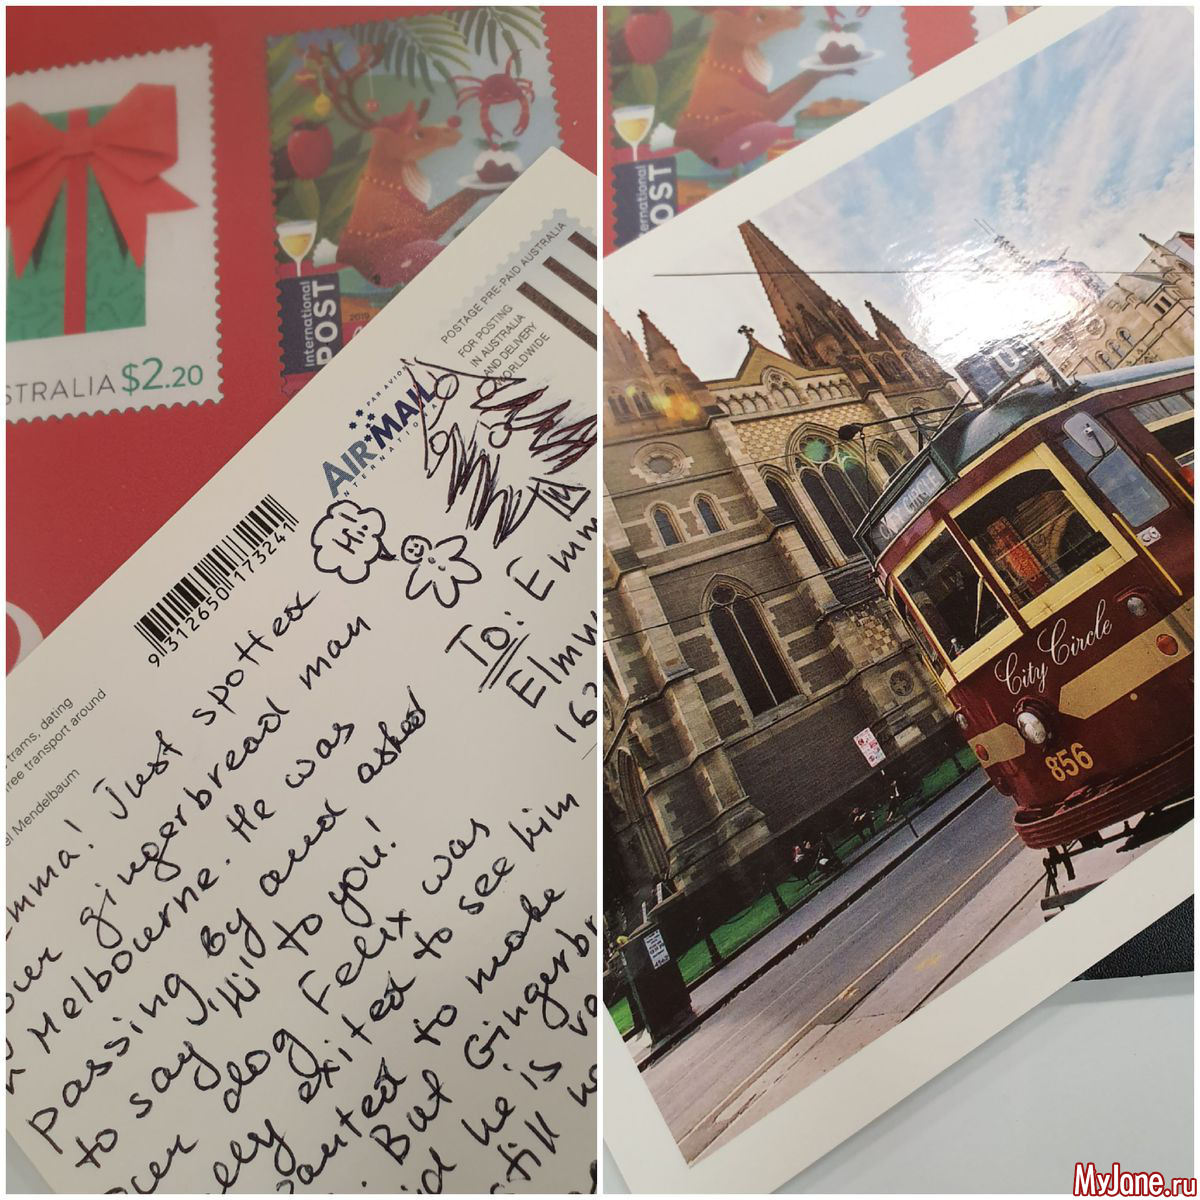 STRALIA $2.20
International
POST
2019
POSTAGE PRE-PAID AUSTRALIA
FOR POSTING
IN AUSTRALIA
AND DELIVERY
WORLDWIDE
PAR AVION
AIR MAIL
INTERNATIONAL
9 312650 173241
trams, dating
ree transport around
el Mendelbaum
Hi!
To: Emm
Elmw
16
mma! Just spotted
our gingerbread man
Melbourne. He was
passing by and asked
to say "Hi" to you!
our dog Felix was
exited to see him
wanted to make
But Gingerbr
he is
still
International
OST
CITY CIRCLE
City Circle
856
C6
MyJane.ru